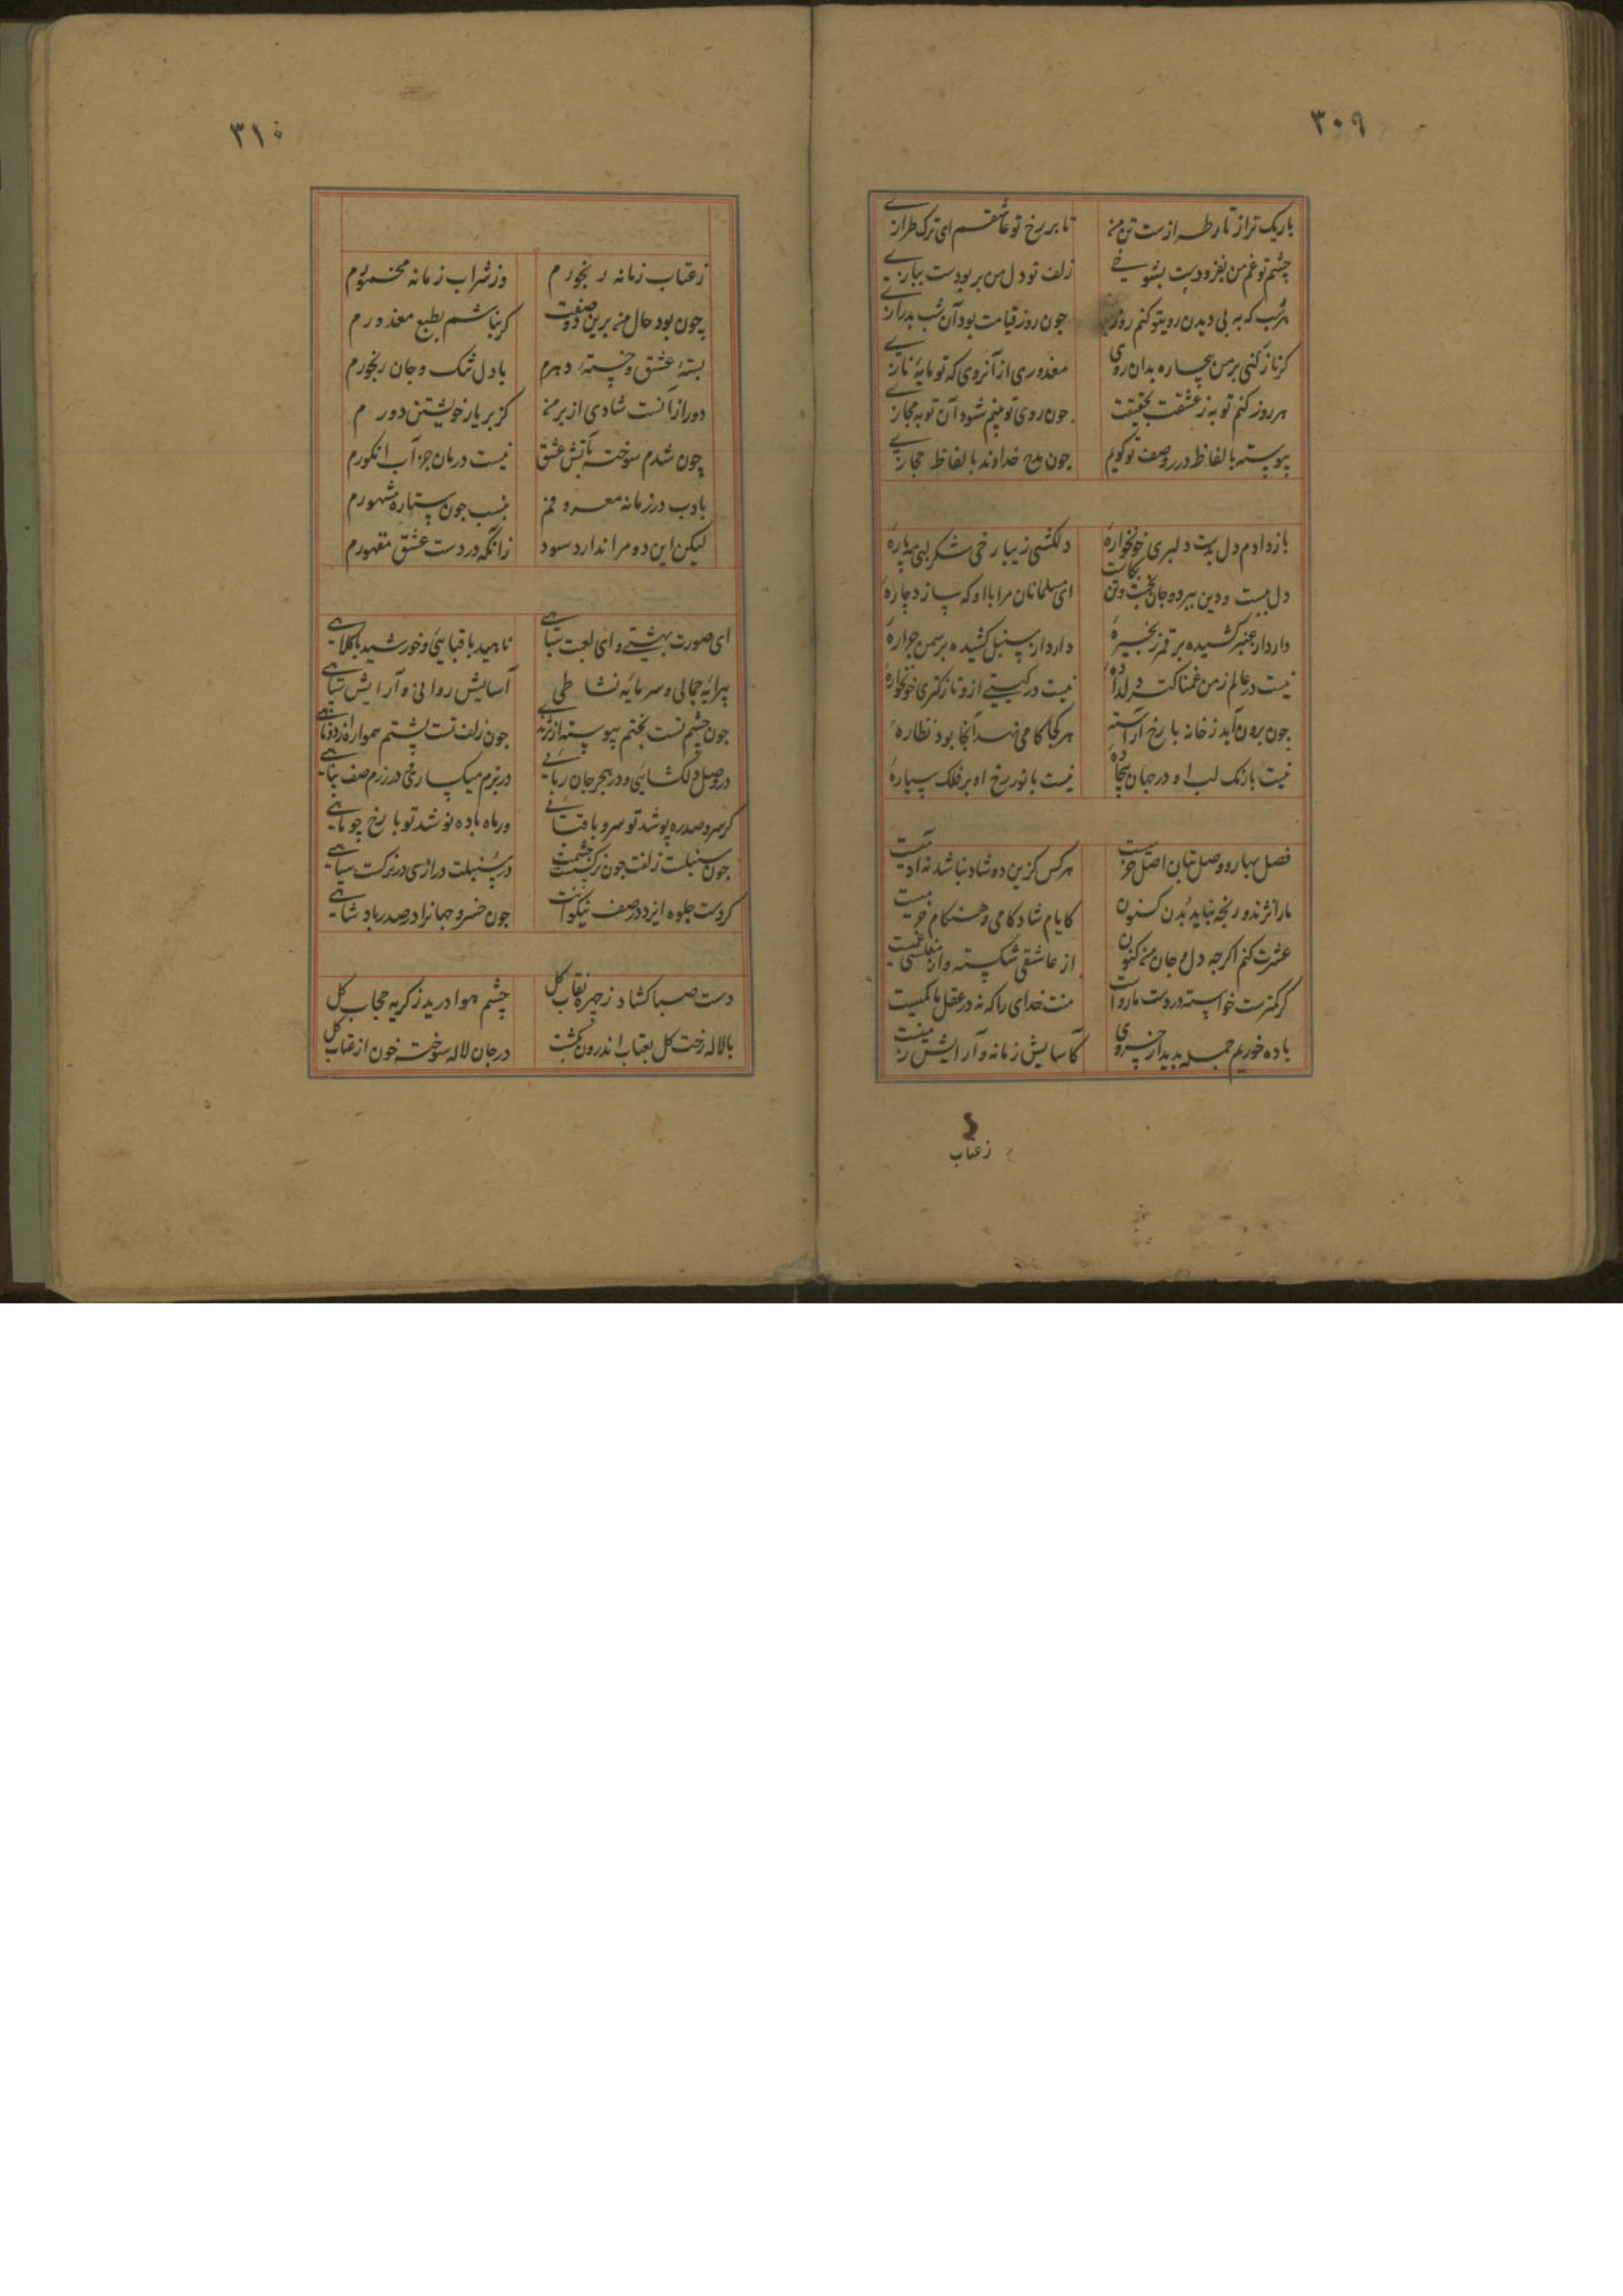 ۳۰۹
باریک تر از تار طرازست تن من تا بر رخ تو عاشقم ای ترک طرازی
چشم تو غم من بفزودست بشوخی زلف تو دل من بربودست ببازی
هر شب که به بی دیدن روی تو کنم روز چون روز قیامت بود آن شب بدرازی
کر ناز کنی بر من بیچاره بدان روی معذوری از آنروی که تو مایه نازی
هر روز کنم توبه ز عشقت بحقیقت چون روی تو بینم شود آن توبه مجازی
پیوسته بالفاظ دری وصف تو کویم چون مدح خداوند بالفاظ حجازی
باز دادم دل بدست دلبری خونخواره دلکشی زیبا رخی شکر لبی مه پاره
دل ببست و دین ببرد و جان بخست و تن بکاست ای مسلمانان مرا با او که سازد چاره
دارد از عنبر کشیده بر قمر زنجیره دارد از سنبل کشیده بر سمن جراره
نیست در عالم ز من غمناکتر دلداده نیست در کیتی ازو نازکتری خونخواره
چون برون آید ز خانه با رخ آراسته هر کجا کامی نهد آنجا بود نظاره
نیست با رنک لب او در جهان بیجاده نیست با نور رخ او بر فلک سیاره
فصل بهار و وصل بتان اصل خرمیست هر کس کزین دو شاد نباشد نه آدمیست
ما را نژند و رنجه نباید بدن کنون کایام شادکامی و هنکام خرمیست
عشرت کنم اکرچه دل و جان من کنون از عاشقی شکسته و از مفلسی غمیست
کر کمترست خواسته در دست ما رواست منت خدای را که نه در عقل ما کمیست
باده خوریم جمله بدیدار خسروی کآسایش زمانه و آرایش زمیست
زعتاب
۳۱۰
زعتاب زمانه رنجورم وز شراب زمانه مخمورم
چون بود حال من برین دو صفت کر نباشم بطبع معذورم
بسته عشق و خسته دهرم با دل تنک و جان رنجورم
دور از آنست شادی از بر من کز بر یار خویشتن دورم
چون شدم سوخته بآتش عشق نیست درمان جز آب انکورم
بادب در زمانه معروفم بنسب چون ستاره مشهورم
لیکن این دو مرا ندارد سود زانکه در دست عشق مقهورم
ای صورت بهشتی و ای لعبت بتاهی ناهید با قبایی و خورشید با کلاهی
پیرایه جمالی و سرمایه نشاطی آسایش روانی و آرایش
چون چشم تست بختم پیوسته از نژندی چون زلف تست پشتم همواره از دوتاهی
در وصل دلکشایی و در هجر جان ربایی در بزم میکساری و در رزم صف پناهی
کر سرو صدره پوشد تو سرو با قبایی ور ماه باده نوشد تو با رخ چو ماهی
چون سنبلست زلفت چون نرکسست چشمت در سنبلت درازی در نرکست سیاهی
کردست جلوه ایزد در صف نیکوانت چون خسرو جهانرا در صدر پادشاهی
دست صبا کشاد ز چهره نقاب کل چشم هوا درید ز کریه حجاب کل
با لاله رخت کل بعتاب اندرون نکشت در جان لاله سوخته خون از عتاب کل